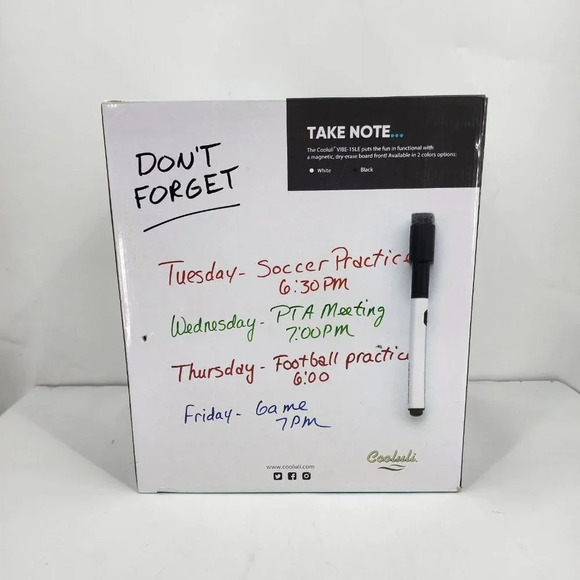 TAKE NOTE...
The Cooluli™ VIBE-15LE puts the fun in functional with
a magnetic, dry-erase board front! Available in 2 colors options:
White Black
DON'T
FORGET
Tuesday - Soccer Practice
6:30 PM
Wednesday - PTA Meeting
7:00PM
Thursday - Football practice
6:00
Friday - Game
7PM
Cooluli
www.cooluli.com